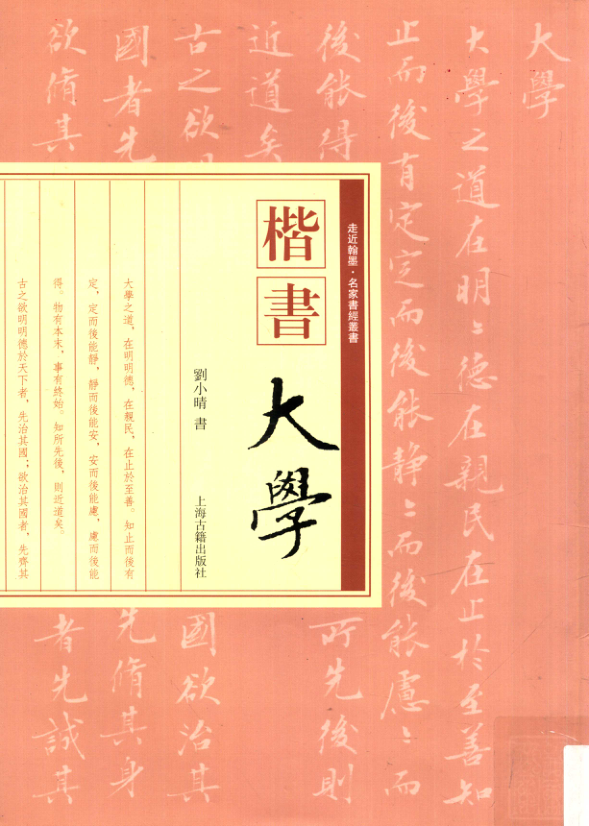 大學
大學之道在明〻德在親民在止於至善知
止而後有定定而後能静〻而後能慮〻而
後能得
所先後則
近道矣
古之欲
國欲治其
國者先
先脩其身
欲脩其
者先誠其
走近翰墨·名家書經叢書
楷書
大學
劉小晴 書
上海古籍出版社
大學之道，在明明德，在親民，在止於至善。知止而後有
定，定而後能靜，靜而後能安，安而後能慮，慮而後能
得。物有本末，事有終始。知所先後，則近道矣。
古之欲明明德於天下者，先治其國；欲治其國者，先齊其